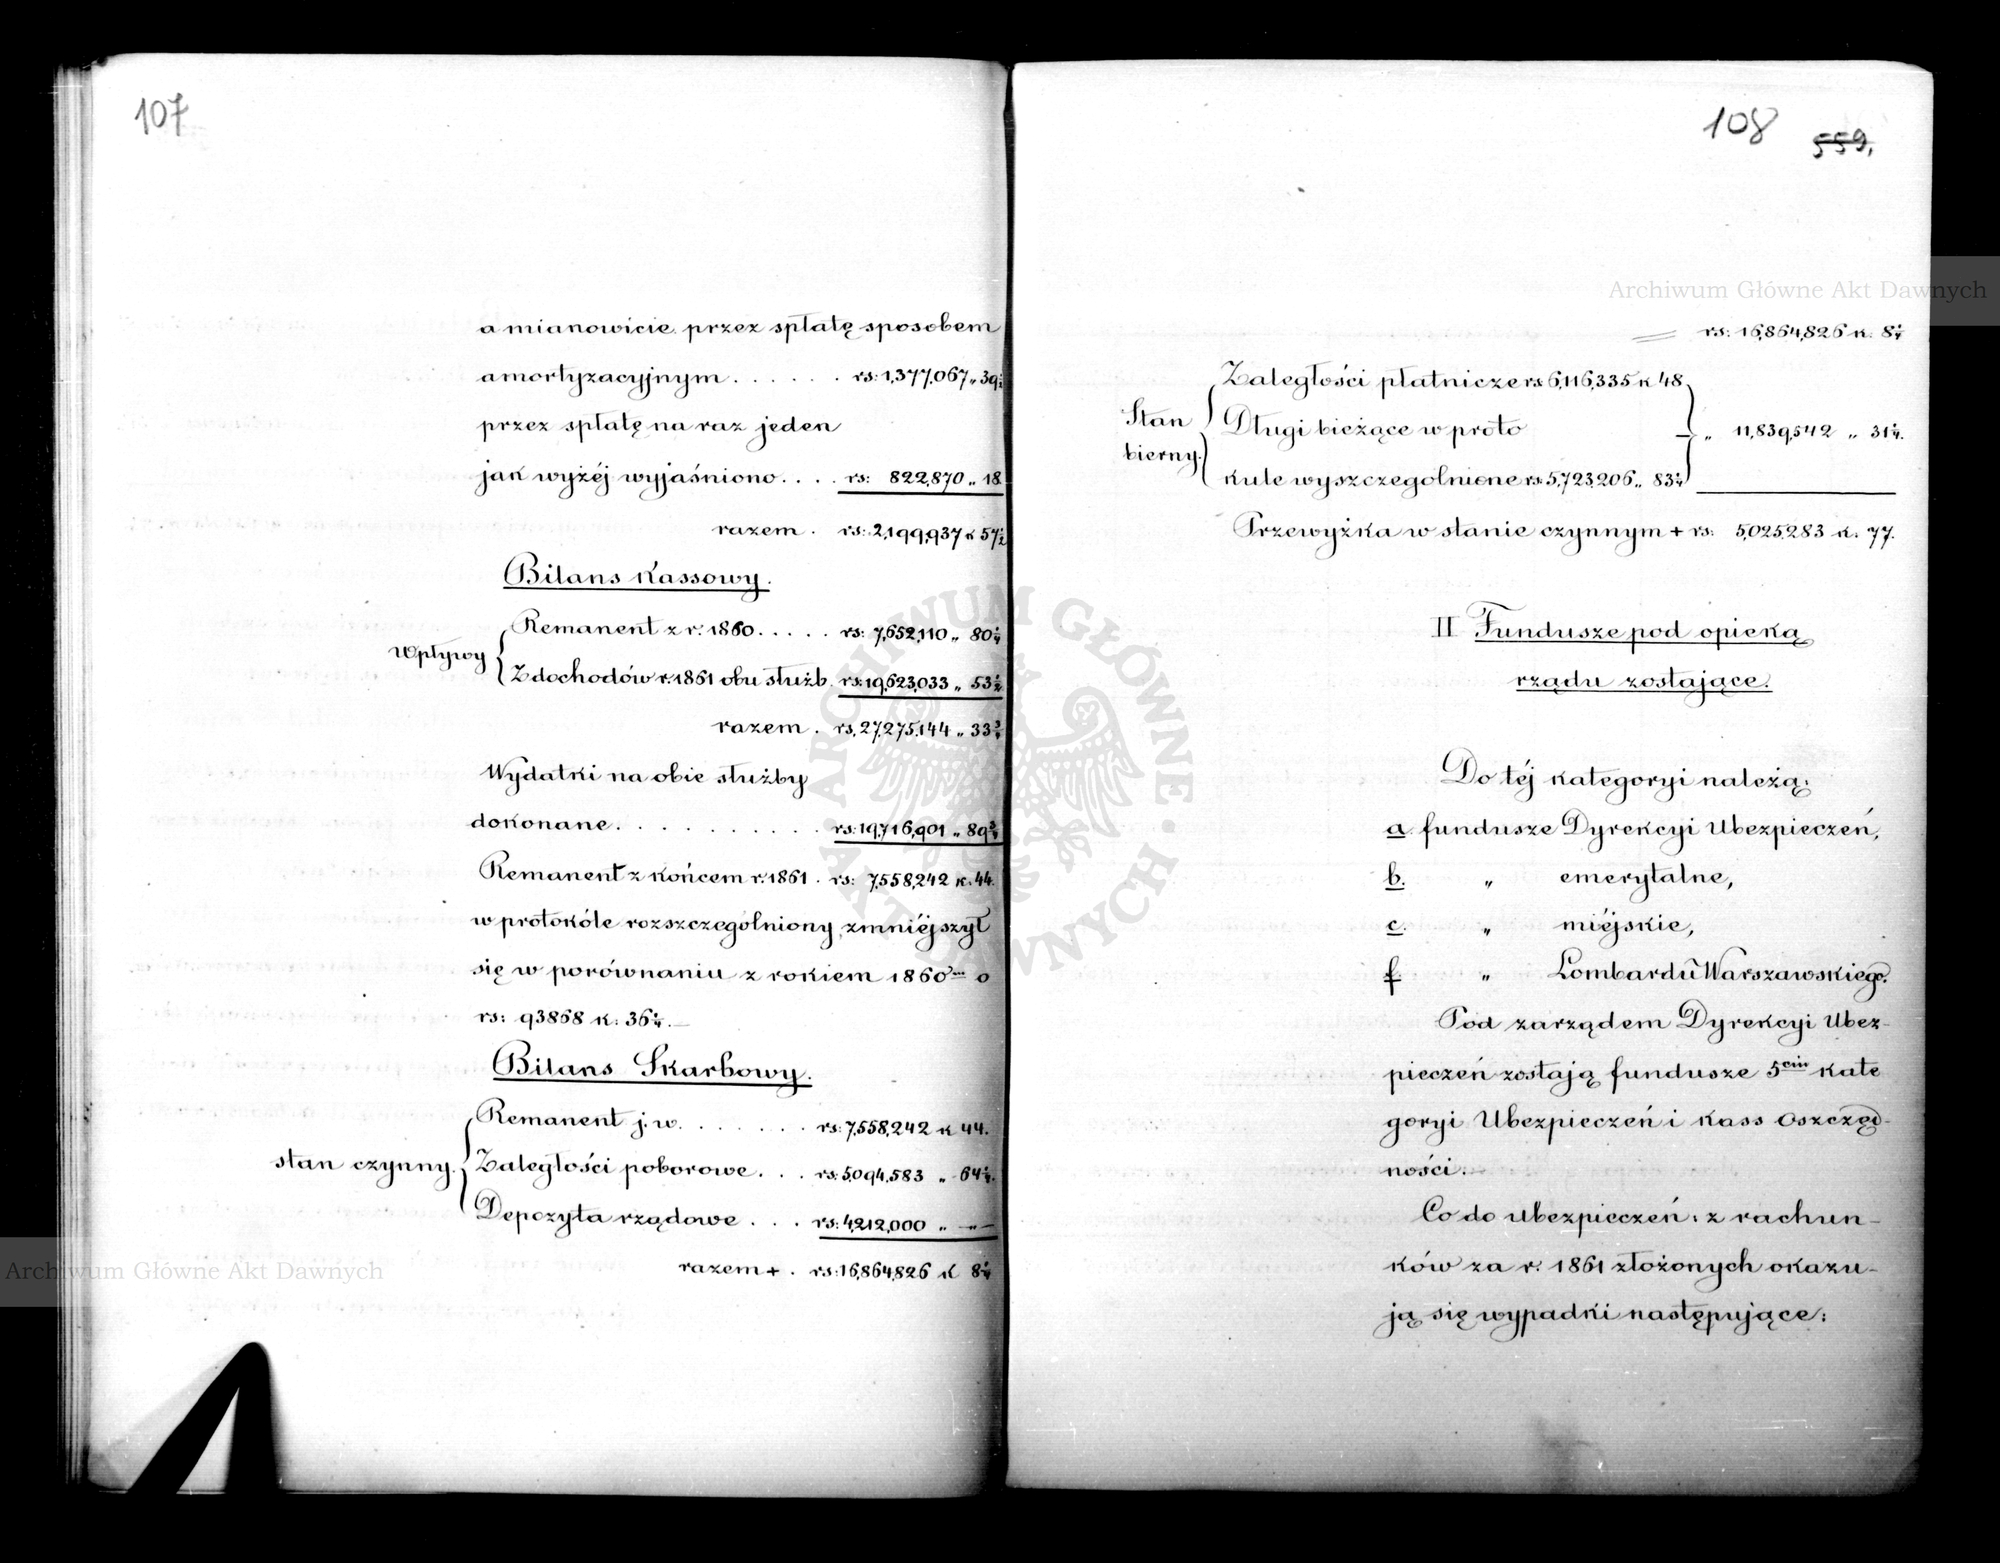 107
a mianowicie przez spłatę sposobem
amortyzacyjnym . . . . . . rs: 1,377,067 „ 39½
przez spłatę na raz jeden
jak wyżéj wyjaśniono . . . . rs: 822,870 „ 18
razem . rs: 2,199,937 k 57½
Bilans Kassowy.
Wpływy
Remanent z r. 1860 . . . . . rs: 7,652,110 „ 80¼
Z dochodów r. 1861 obu służb. rs: 19,623,033 „ 53½
razem . rs. 27,275,144 „ 33¾
Wydatki na obie służby
dokonane . . . . . . . . . . rs: 19,716,901 „ 89¾
Remanent z końcem r. 1861 . rs: 7,558,242 k. 44.
w protokóle rozszczególniony, zmniéjszył
się w porównaniu z rokiem 1860ᵐ o
rs: 93868 k: 36¼.—
Bilans Skarbowy.
stan czynny.
Remanent j. w. . . . . . . rs: 7,558,242 k 44.
Zaległości poborowe . . . rs: 5,094,583 „ 64¼.
Depozyta rządowe . . . rs: 4,212,000 „ —„—
razem + . rs: 16,864,826 k 8¼
108 559,
rs: 16,864,826 k. 8¼
Stan
bierny.
Zaległości płatnicze rs 6,116,335 k 48
Długi bieżące w proto
— „ 11,839,542 „ 31¼.
kule wyszczególnione rs: 5,723,206 „ 83¼
Przewyżka w stanie czynnym + rs: 5,025,283 k. 77.
II Fundusze pod opieką
rządu zostające.
Do téj kategoryi należą:
a. fundusze Dyrekcyi Ubezpieczeń,
b. „ emerytalne,
c. „ miéjskie,
f. „ Lombardu Warszawskiego.
Pod zarządem Dyrekcyi Ubez-
pieczeń zostają fundusze 5ciu kate
goryi Ubezpieczeń i kass Oszczęd-
ności.
Co do ubezpieczeń: z rachun-
ków za r. 1861 złożonych okazu-
ją się wypadki następujące:
Archiwum Główne Akt Dawnych
Archiwum Główne Akt Dawnych
ARCHIWUM GŁÓWNE · AKT DAWNYCH ·